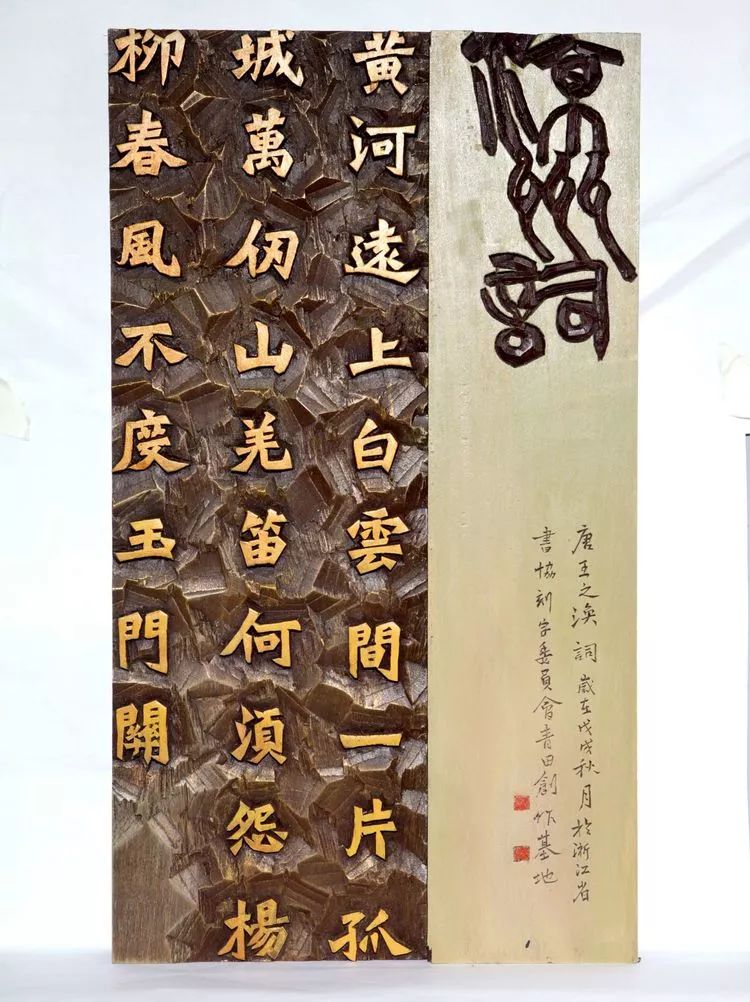 涼州詞
唐王之渙詞歲在戊戌秋月於浙江省
書協刻字委員會青田創作基地
黄河遠上白雲間一片孤
城萬仞山羌笛何須怨楊
柳春風不度玉門關